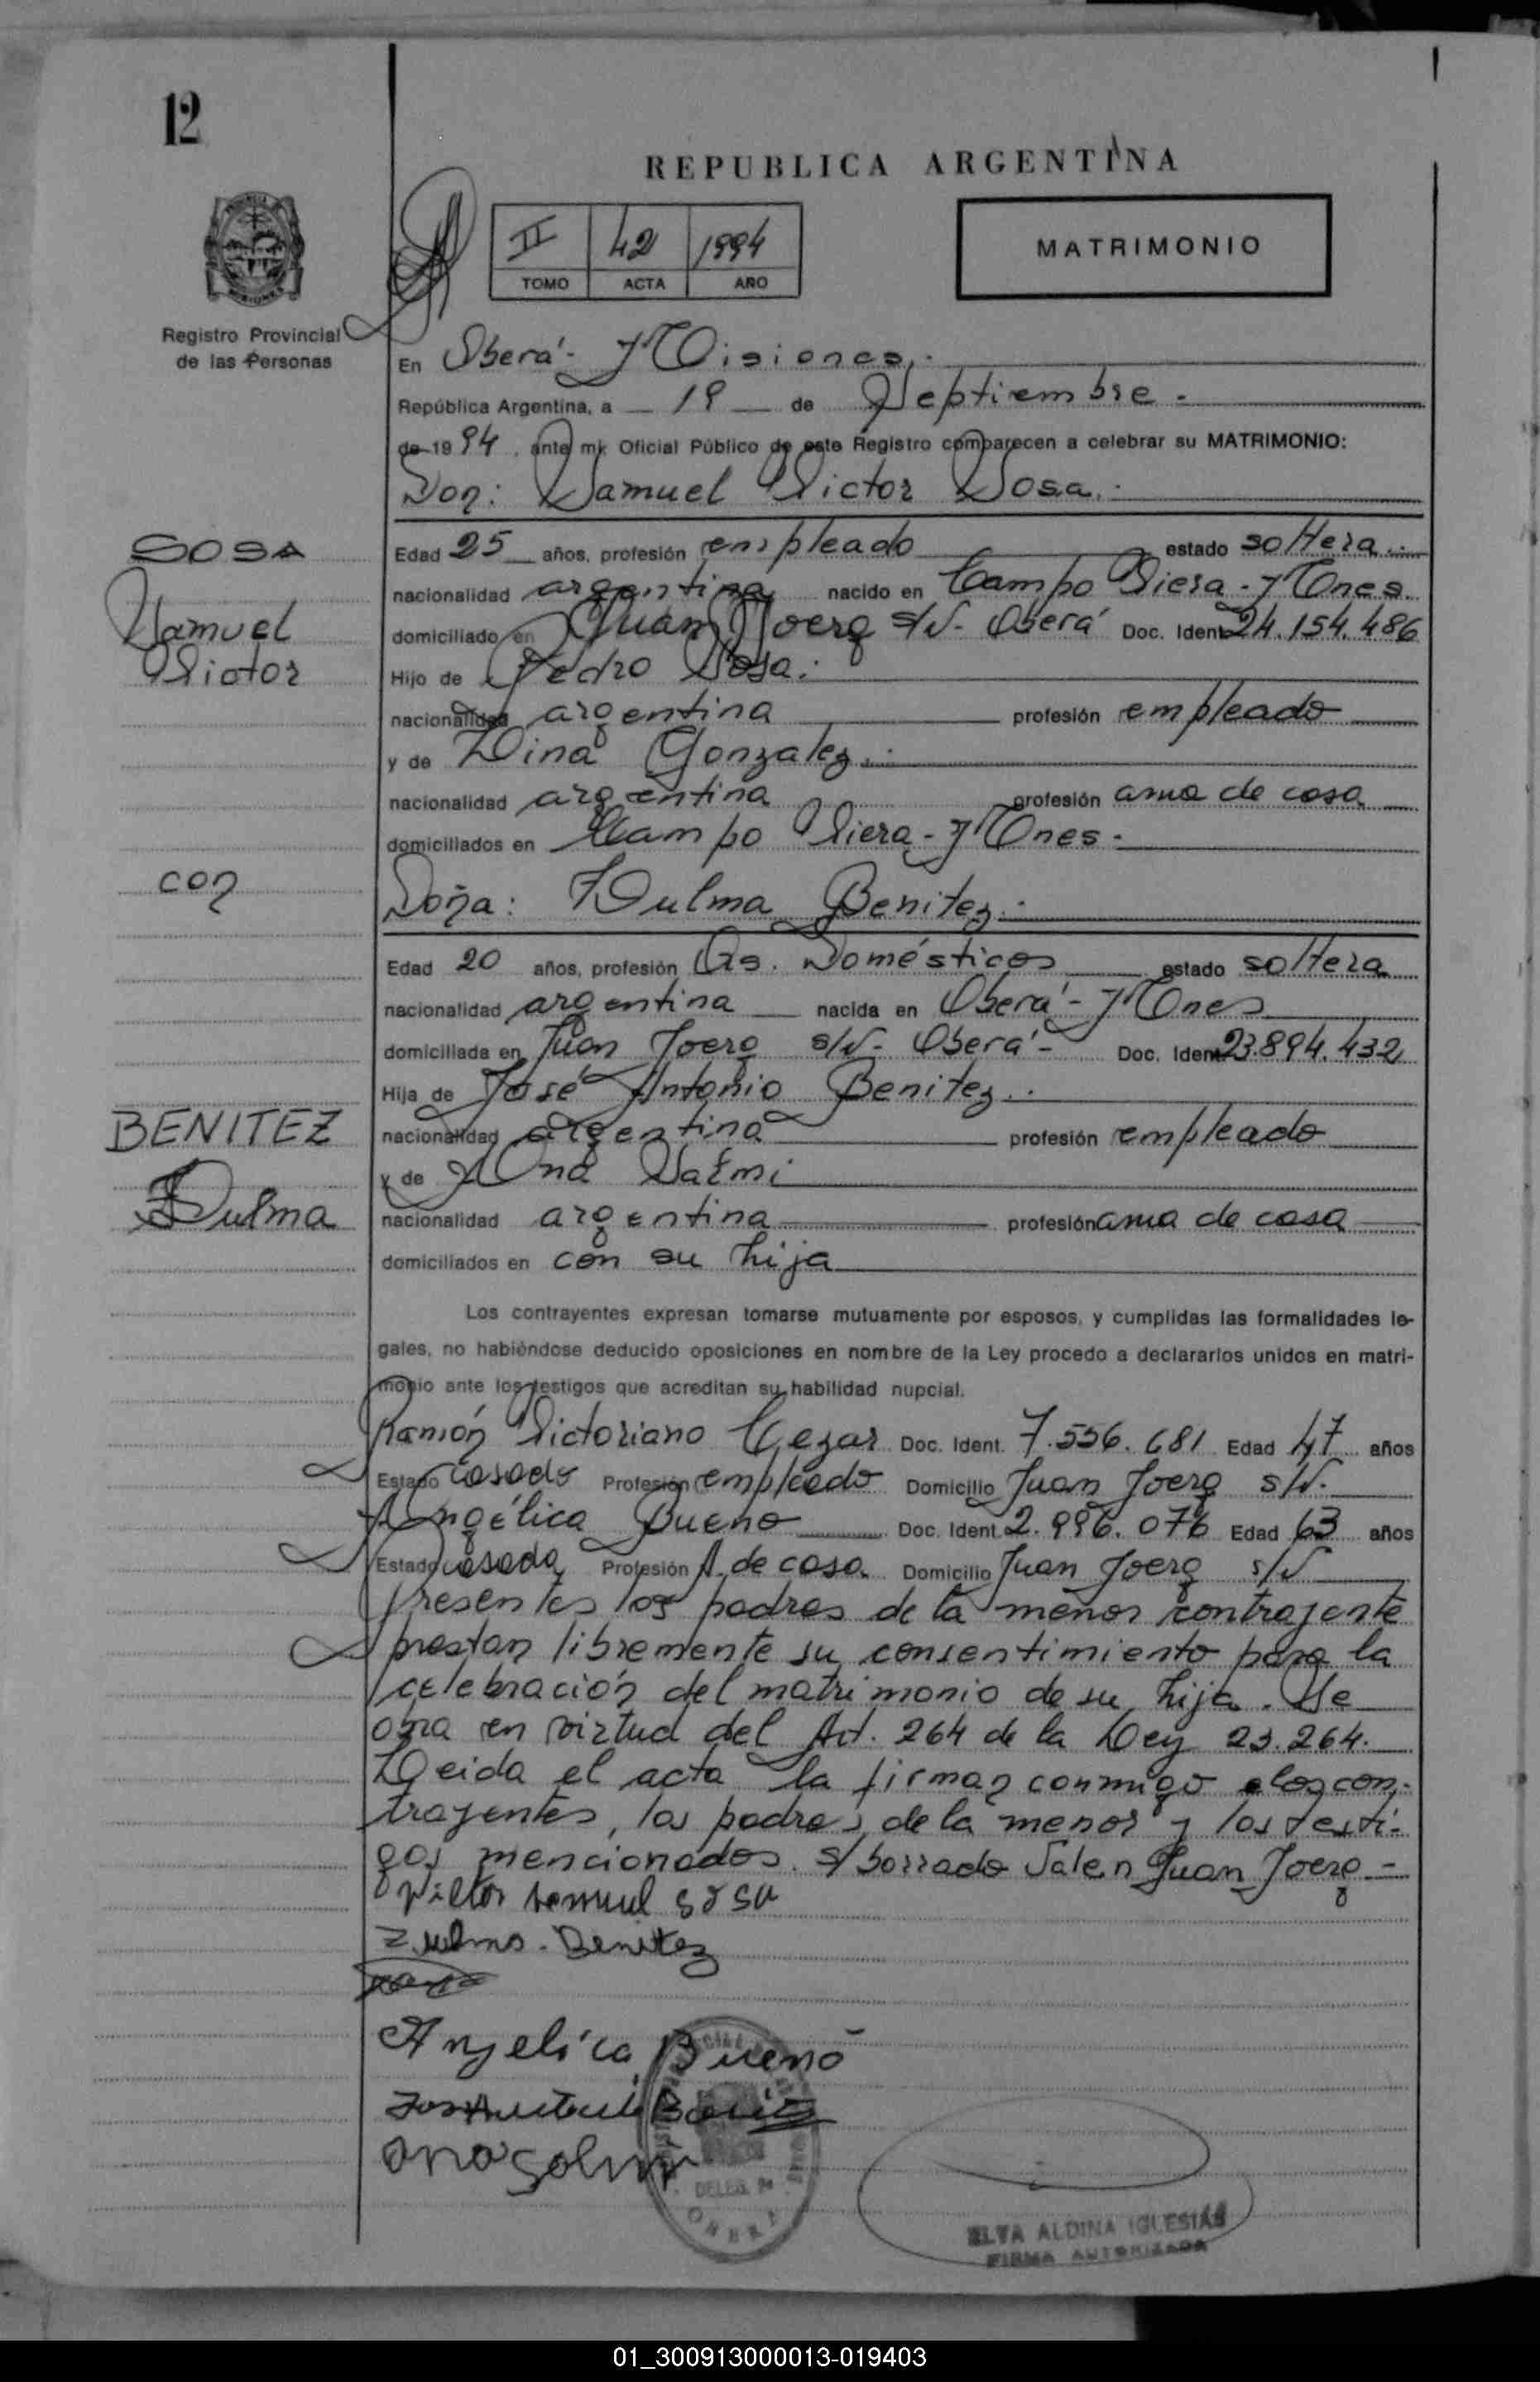 12
REPUBLICA ARGENTINA
II 42 1994
TOMO ACTA AÑO
MATRIMONIO
Registro Provincial
de las Personas
En Oberá - Misiones.-
República Argentina, a 19 de Septiembre -
de 1994, ante mí, Oficial Público de este Registro comparecen a celebrar su MATRIMONIO:
Don: Samuel Victor Sosa.-
SOSA
Samuel
Victor
Edad 25 años, profesión empleado estado soltera.-
nacionalidad argentina nacido en Campo Viera - Mnes.
domiciliado en Juan Joerg s/N - Oberá Doc. Ident. 24.154.486
Hijo de Pedro Sosa.-
nacionalidad argentina profesión empleado
y de Dina Gonzalez.-
nacionalidad argentina profesión ama de casa
domiciliados en Campo Viera - Mnes -
con
Doña: Zulma Benitez.-
Edad 20 años, profesión Qs. Domésticos estado soltera
nacionalidad argentina nacida en Oberá - Mnes
domiciliada en Juan Joerg s/N - Oberá - Doc. Ident. 23.894.432
Hija de José Antonio Benitez.-
BENITEZ
Zulma
nacionalidad argentina profesión empleado
y de Ana
nacionalidad argentina profesión ama de casa
domiciliados en con su hija
Los contrayentes expresan tomarse mutuamente por esposos, y cumplidas las formalidades le-
gales, no habiéndose deducido oposiciones en nombre de la Ley procedo a declararlos unidos en matri-
monio ante los testigos que acreditan su habilidad nupcial.
Ramón Victoriano Cezar Doc. Ident. 7.556.681 Edad 47 años
Estado casado Profesión empleado Domicilio Juan Joerg s/N.
Angélica Bueno Doc. Ident. 2.996.076 Edad 63 años
Estado casada Profesión A. de casa. Domicilio Juan Joerg s/N
Presentes los padres de la menor contrayente
prestan libremente su consentimiento para la
celebración del matrimonio de su hija. Se
obra en virtud del Art. 264 de la Ley 23.264.
Leida el acta la firman conmigo los con-
trayentes, los padres de la menor y los testi-
gos mencionados. s/borrado Valen Juan Joerg -
Victor Samuel Sosa
Zulma. Benitez
Angelica Bueno
Jose Antonio Benitez
Ana
DELEG.
OBERA
ELVA ALDINA IGLESIAS
FIRMA AUTORIZADA
01_300913000013-019403